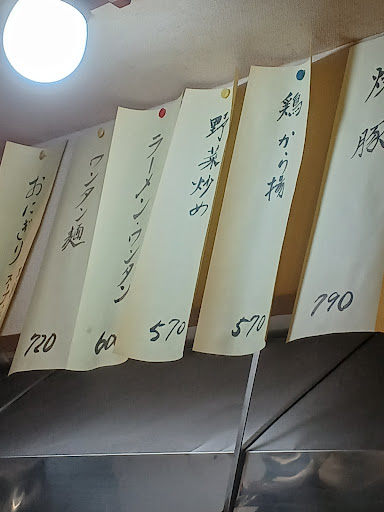 豚
790
鶏から揚
570
野菜炒め
570
ラーメン・ワンタン
60
ワンタン麺
720
おにぎり